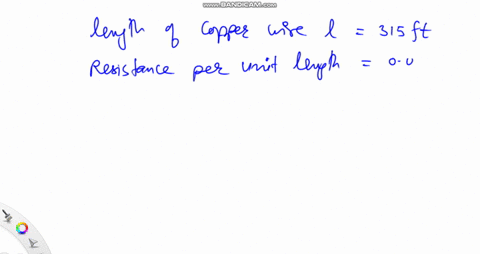 WWW.BANDICAM.COM
length of copper wire l = 315 ft
Resistance per unit length = 0.0